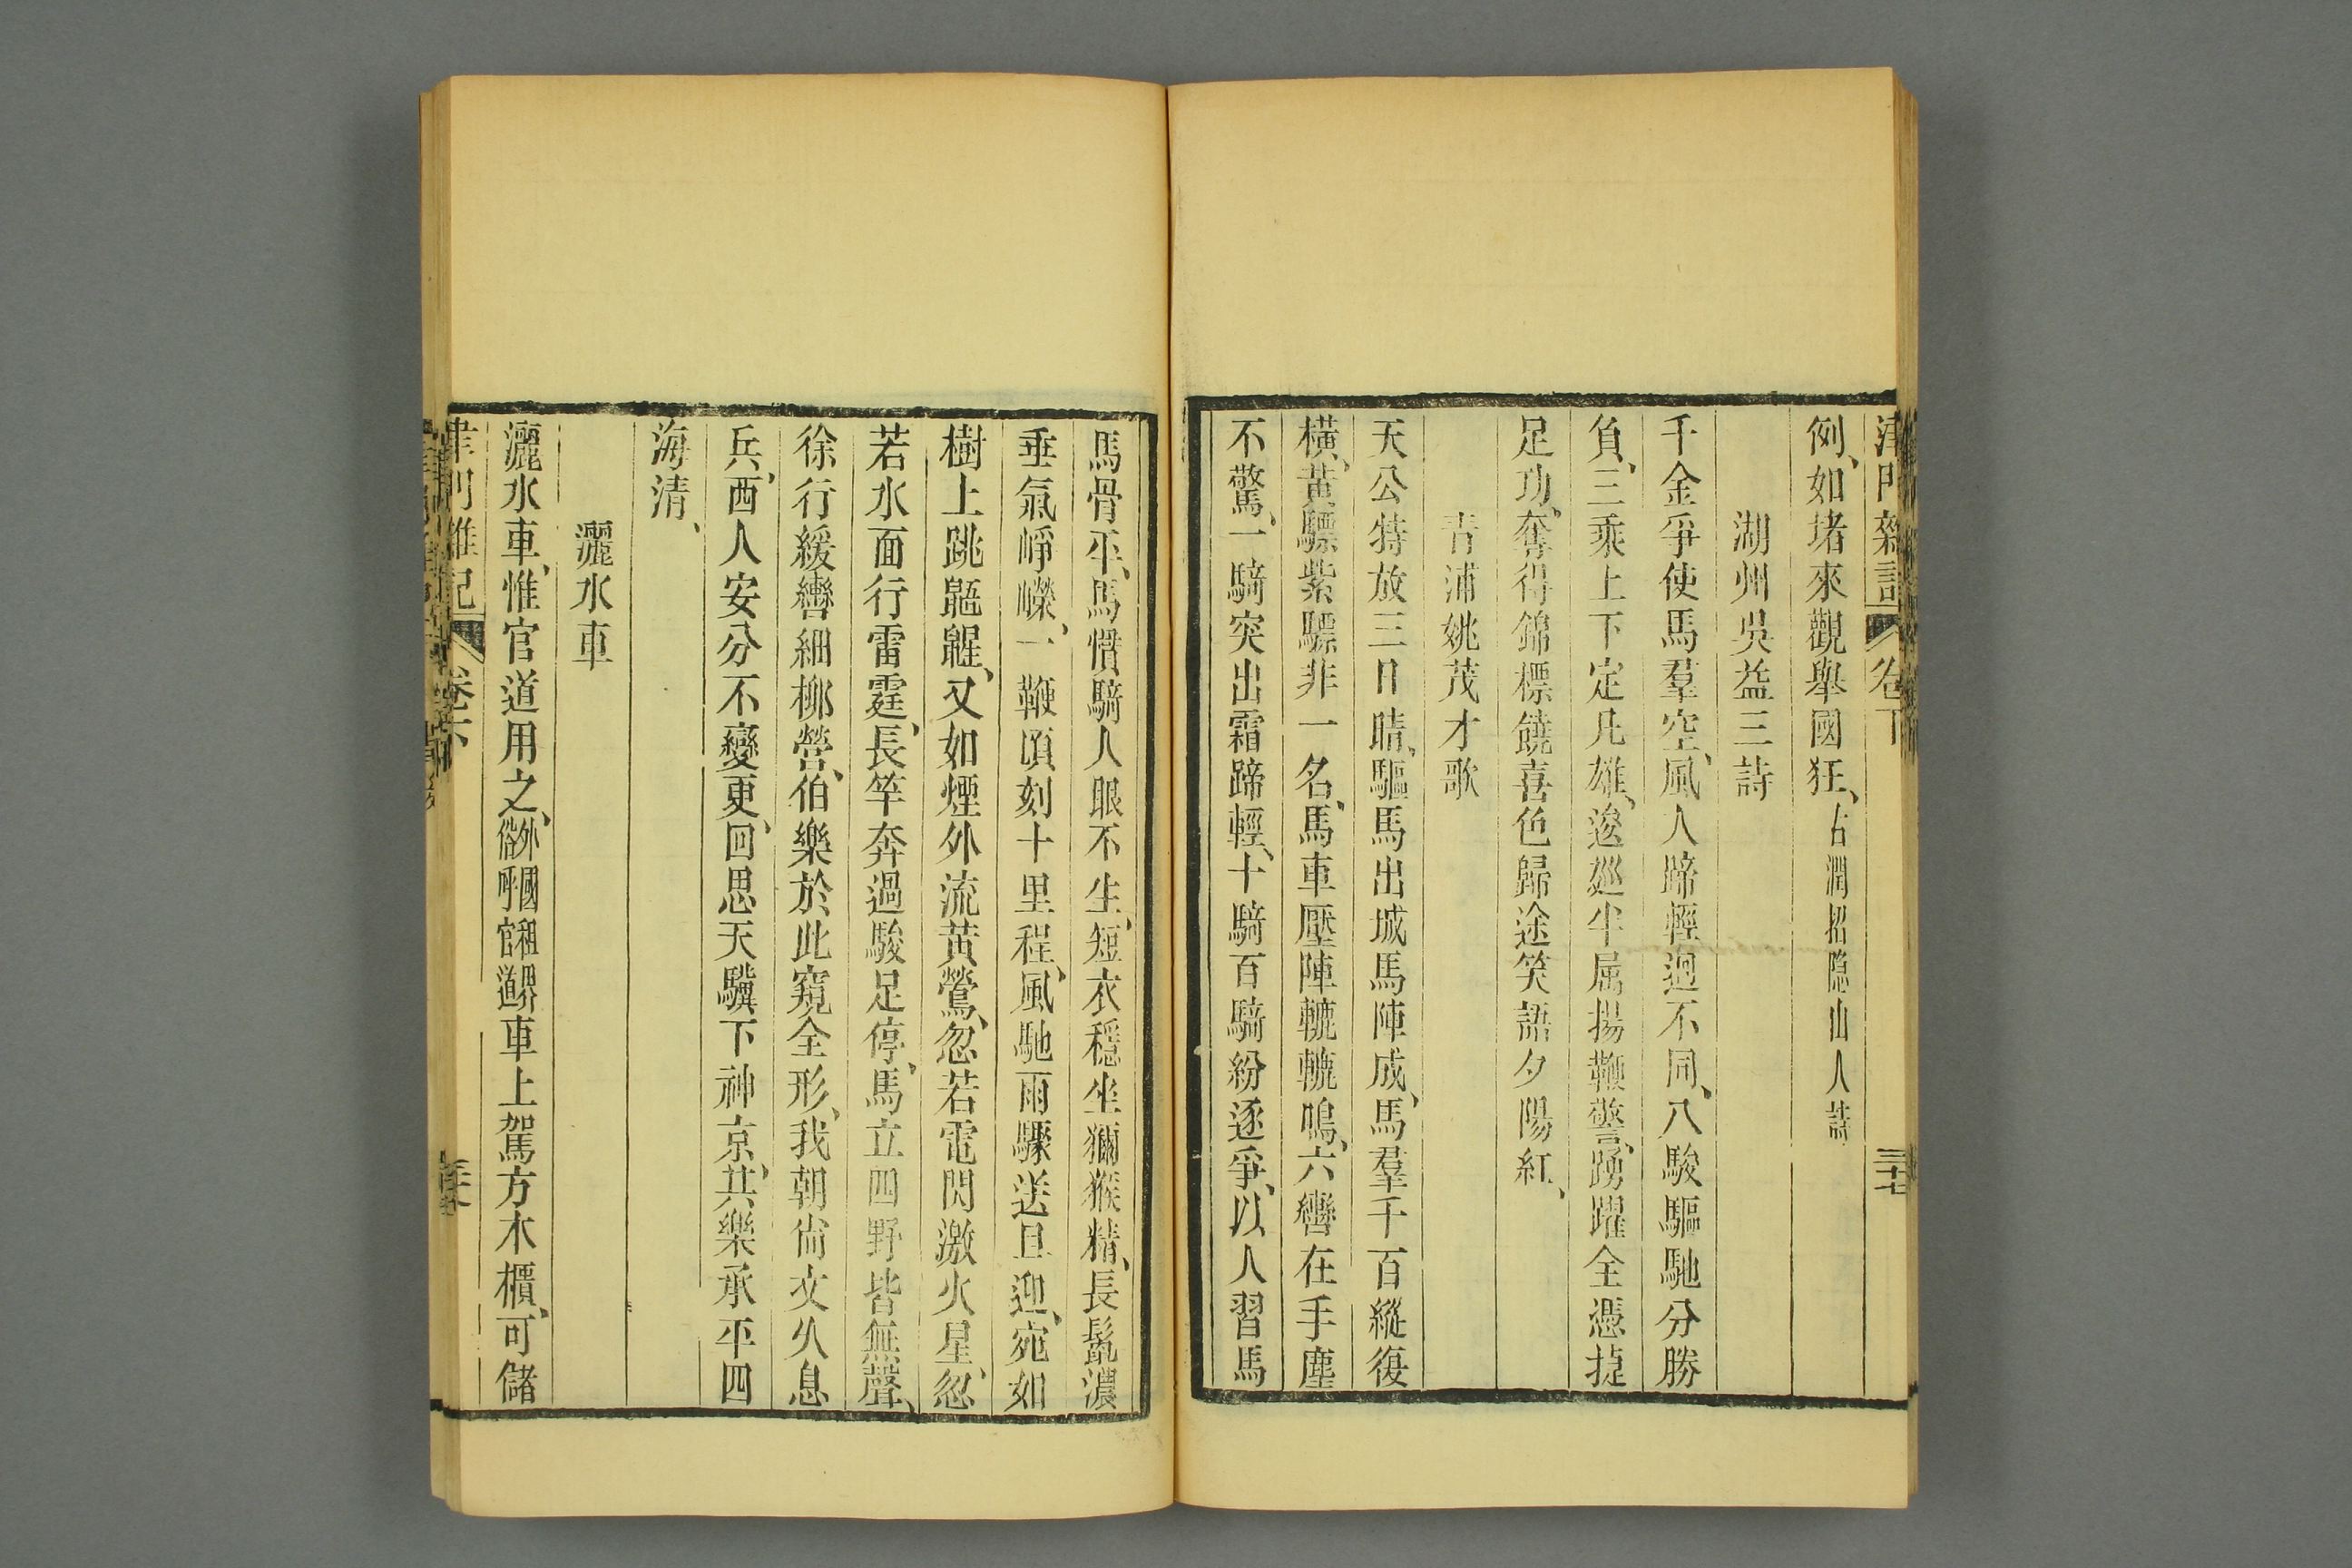 津門雜記 卷下 三十七
例、如堵來觀舉國狂、古潤招隱山人詩
湖州吳益三詩
千金爭使馬羣空、風入蹄輕迥不同、八駿驅馳分勝
負、三乘上下定凡雄、逡廵半屈揚鞭警、踴躍全憑捷
足功、奪得錦標饒喜色歸途笑語夕陽紅、
青浦姚茂才歌
天公特放三日晴、驅馬出城馬陣成、馬羣千百縱復
橫、黃驃紫驃非一名、馬車壓陣轆轆鳴、六轡在手塵
不驚、一騎突出霜蹄輕、十騎百騎紛逐爭、以人習馬
馬骨平、馬慣騎人眼不生、短衣穩坐獼猴精、長鬛濃
垂氣崢嶸、一鞭頃刻十里程、風馳雨驟送且迎、宛如
樹上跳鼯鼪、又如煙外流黃鶯、忽若電閃激火星、忽
若水面行雷霆、長竿奔過駿足停、馬立四野皆無聲、
徐行緩轡細柳營、伯樂於此窺全形、我朝尙文久息
兵、西人安分不變更、回思天驥下神京、共樂承平四
海清、
灑水車
灑水車、惟官道用之、外國租界俗呼官道車上駕方木櫃、可儲
卷下